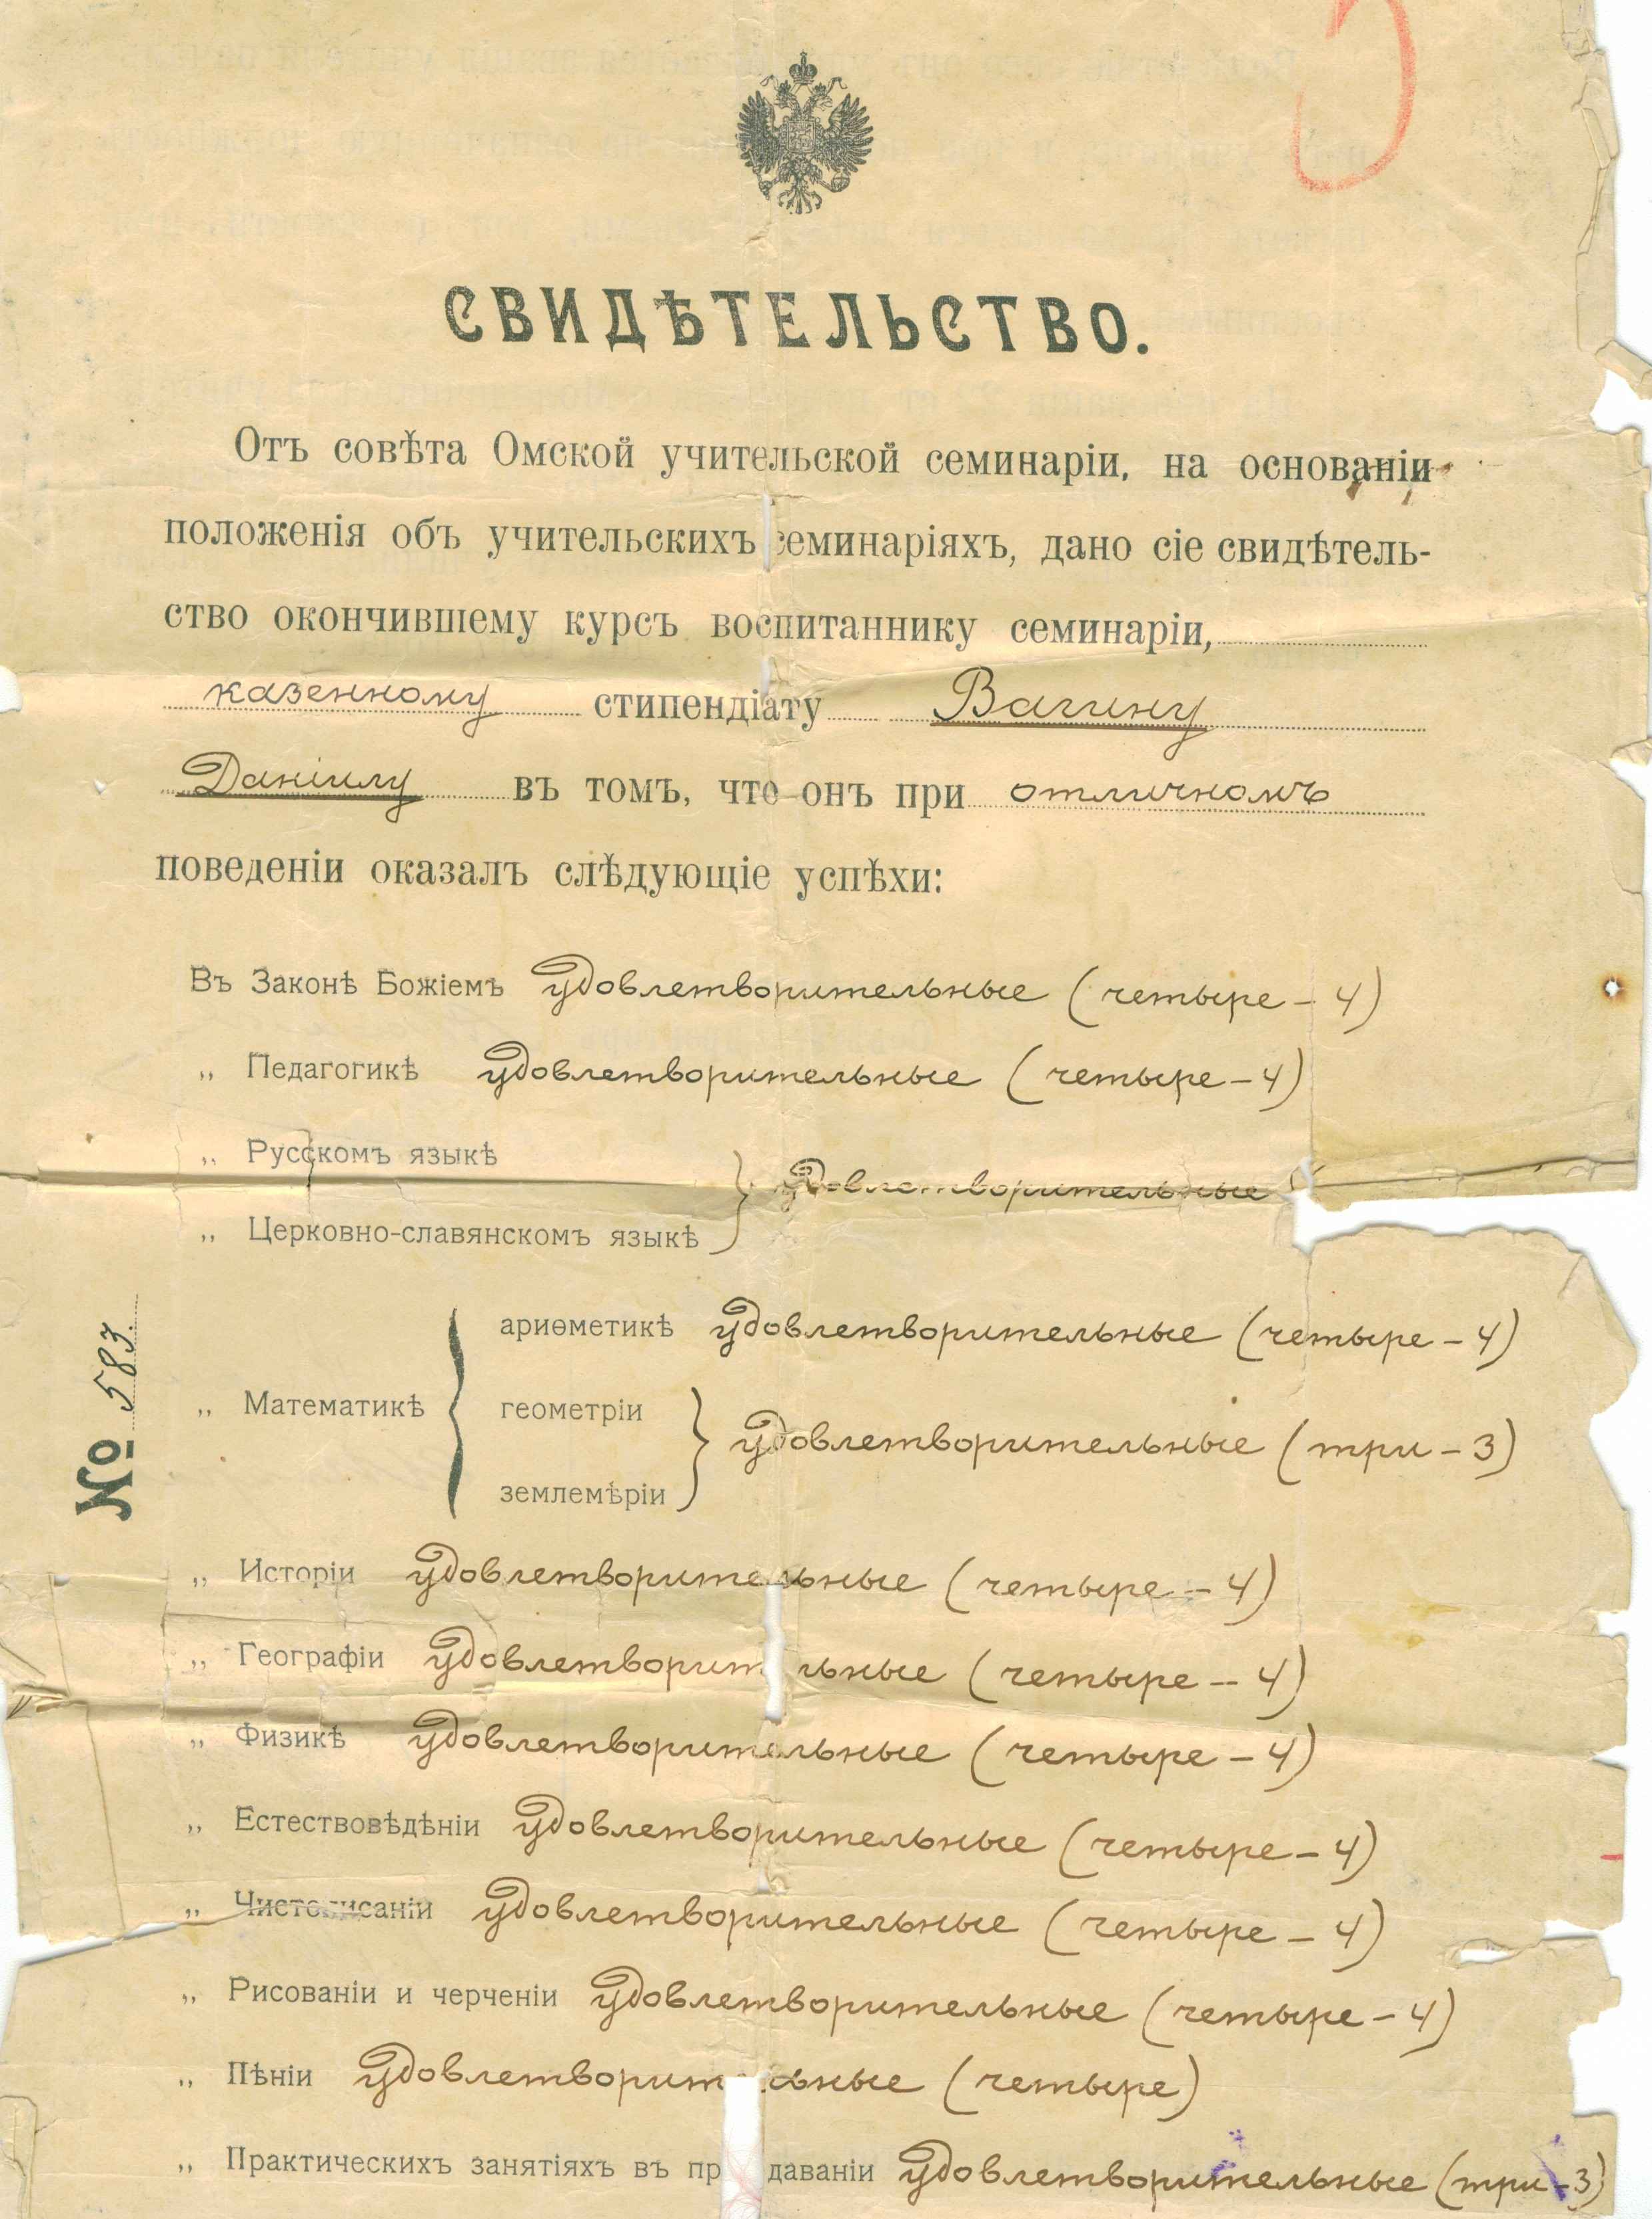 СВИДѢТЕЛЬСТВО.
Отъ совѣта Омской учительской семинаріи, на основаніи
положенія объ учительскихъ семинаріяхъ, дано сіе свидѣтель-
ство окончившему курсъ воспитаннику семинаріи,
казенному стипендіату Вагину
Даніилу въ томъ, что онъ при отличномъ
поведеніи оказалъ слѣдующіе успѣхи:
Въ Законѣ Божіемъ удовлетворительные (четыре – 4)
„ Педагогикѣ удовлетворительные (четыре – 4)
„ Русскомъ языкѣ
удовлетворительные
„ Церковно-славянскомъ языкѣ
ариѳметикѣ удовлетворительные (четыре – 4)
„ Математикѣ геометріи
удовлетворительные (три – 3)
землемѣріи
№ 583.
„ Исторіи удовлетворительные (четыре – 4)
„ Географіи удовлетворительные (четыре – 4)
„ Физикѣ удовлетворительные (четыре – 4)
„ Естествовѣдѣніи удовлетворительные (четыре – 4)
„ Чистописаніи удовлетворительные (четыре – 4)
„ Рисованіи и черченіи удовлетворительные (четыре – 4)
„ Пѣніи удовлетворительные (четыре)
„ Практическихъ занятіяхъ въ преподаваніи удовлетворительные (три – 3)